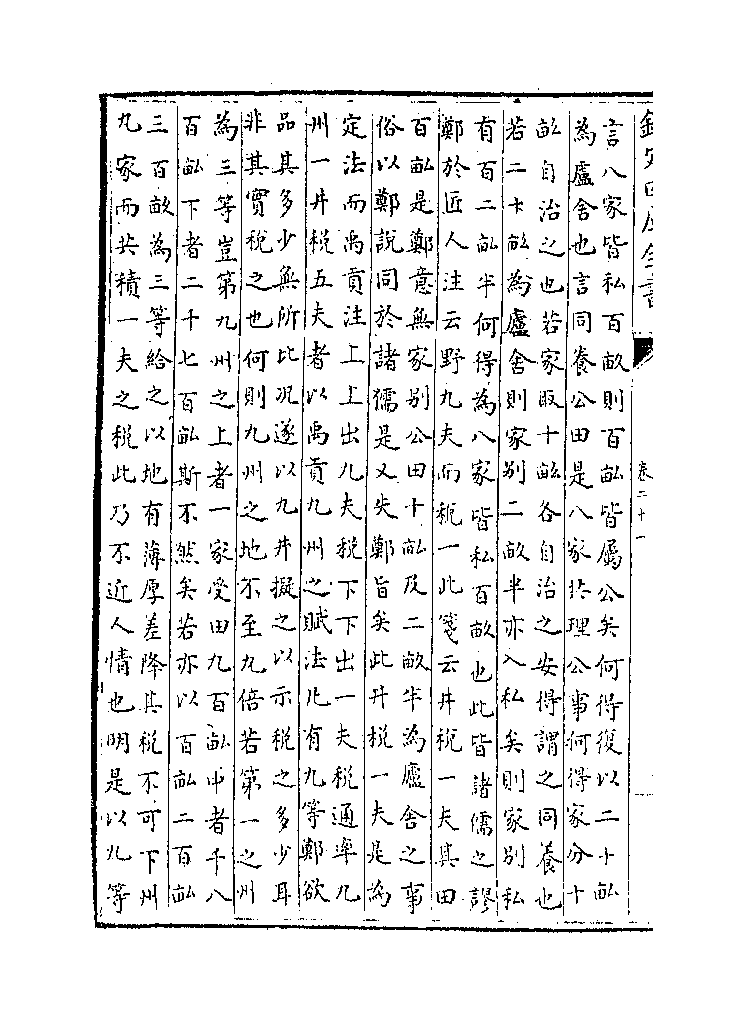 欽定四庫全書 卷二十一
言八家皆私百畝則百畝皆屬公矣何得復以二十畝
為廬舍也言同養公田是八家共理公事何得家分十
畝自治之也若家取十畝各自治之安得謂之同養也
若二十畝為廬舍則家別二畝半亦入私矣則家別私
有百二畝半何得為八家皆私百畝也此皆諸儒之謬
鄭於匠人注云野九夫而稅一此箋云井稅一夫其田
百畝是鄭意無家別公田十畝及二畝半為廬舍之事
俗以鄭說同於諸儒是又失鄭旨矣此井稅一夫是為
定法而禹貢注上上出九夫稅下下出一夫稅通率九
州一井稅五夫者以禹貢九州之賦法凡有九等鄭欲
品其多少無所比况遂以九井擬之以示稅之多少耳
非其實稅之也何則九州之地不至九倍若第一之州
為三等豈第九州之上者一家受田九百畝中者千八
百畝下者二千七百畝斯不然矣若亦以百畝二百畝
三百畝為三等給之以地有薄厚差降其稅不可下州
九家而共積一夫之稅此乃不近人情也明是以九等